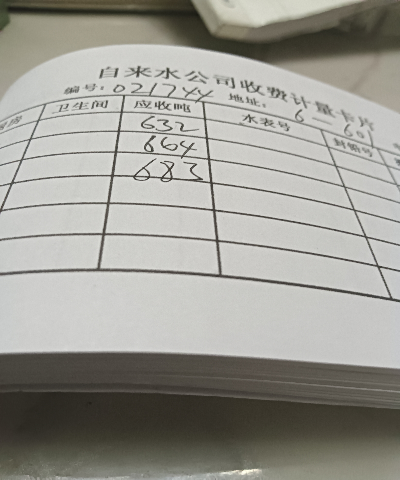 自来水公司收费计量卡片
编号: 021744 地址: 6-601
卫生间 应收吨 水表号 封铅号
632
664
683